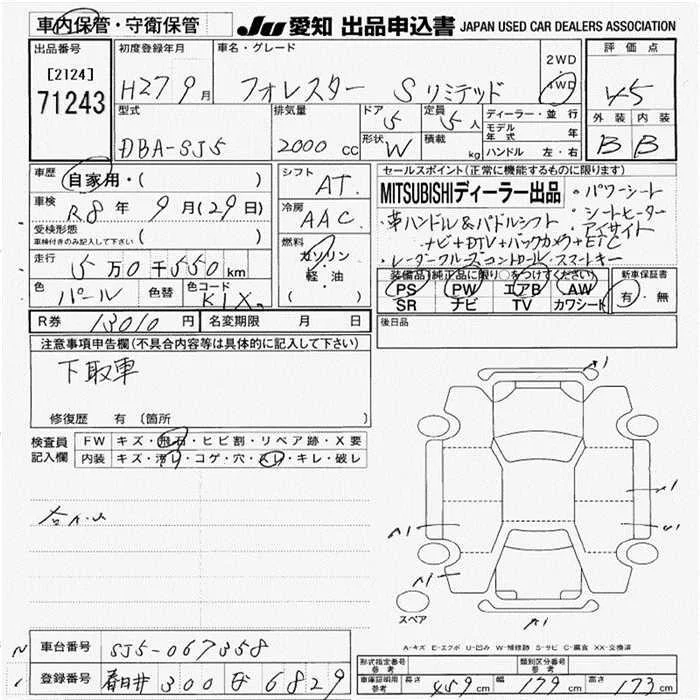 車内保管・守衛保管 JU 愛知 出品申込書 JAPAN USED CAR DEALERS ASSOCIATION
出品番号 初度登録年月 車名・グレード 2WD 評価点
[2124] H27 9月 フォレスター Sリミテッド 4WD 4.5
71243
型式 排気量 ドア 定員 ディーラー・並行 外装 内装
5 5人 モデル年式 年
DBA-SJ5 2000cc 形状 W 積載 kg ハンドル 左・右 B B
車歴 自家用・( ) シフト AT. セールスポイント(正常に機能するものに限ります)
MITSUBISHIディーラー出品 ・パワーシート
車検 R8年 9月(29日) 冷房 AAC ・革ハンドル&パドルシフト ・シートヒーター
受検形態 ( ) ・アイサイト
車検付きのみ記入して下さい 燃料 ナビ+DTV+バックカメラ+ETC
走行 5万0千550km ガソリン ・レーダークルーズコントロール・スマートキー
軽・油 装備品(純正品に限り○をつけてください) 新車保証書
色 パール 色替 色コード K1X ( ) PS PW エアB AW 有・無
SR ナビ TV カワシート
R券 13010円 名変期限 月 日 後日品
注意事項申告欄(不具合内容等は具体的に記入して下さい)
下取車
修復歴 有(箇所 )
検査員 FW キズ・飛石・ヒビ割・リペア跡・X要
記入欄 内装 キズ・汚レ・コゲ・穴・スレ・キレ・破レ
A1
A1
A1
スペア
A-キズ E-エクボ U-凹み W-補修跡 S-サビ C-腐食 XX-交換済
車台番号 SJ5-067358
形式指定番号 参考 類別区分番号 参考
登録番号 春日井 300 6829
車庫証明用 参考 長さ 459cm 幅 179cm 高さ 173cm